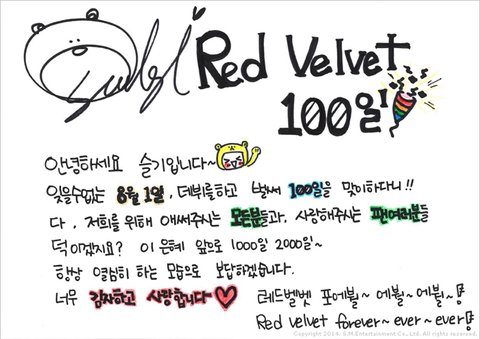 Seulgi
Red Velvet
100일!
안녕하세요 슬기입니다~
잊을수없는 8월 1일, 데뷔를하고 벌써 100일을 맞이하다니!!
다, 저희를 위해 애써주시는 모든분들과, 사랑해주시는 팬여러분들
덕이겠지요? 이 은혜 앞으로 1000일 2000일~
항상 열심히 하는 모습으로 보답하겠습니다.
너무 감사하고 사랑합니다♥
레드벨벳 포에버~ 에버~ 에버~!
Red Velvet forever~ ever~ ever!
Copyright 2014. S.M.Entertainment Co., Ltd. All rights reserved.